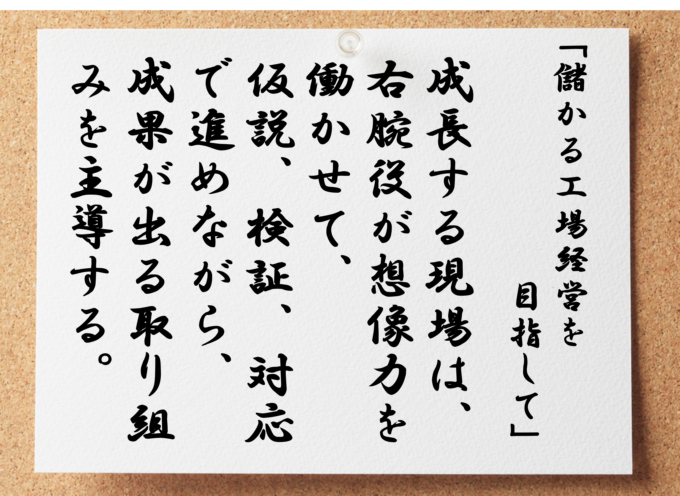 「儲かる工場経営を
目指して」
成長する現場は、
右腕役が想像力を
働かせて、
仮説、検証、対応
で進めながら、
成果が出る取り組
みを主導する。